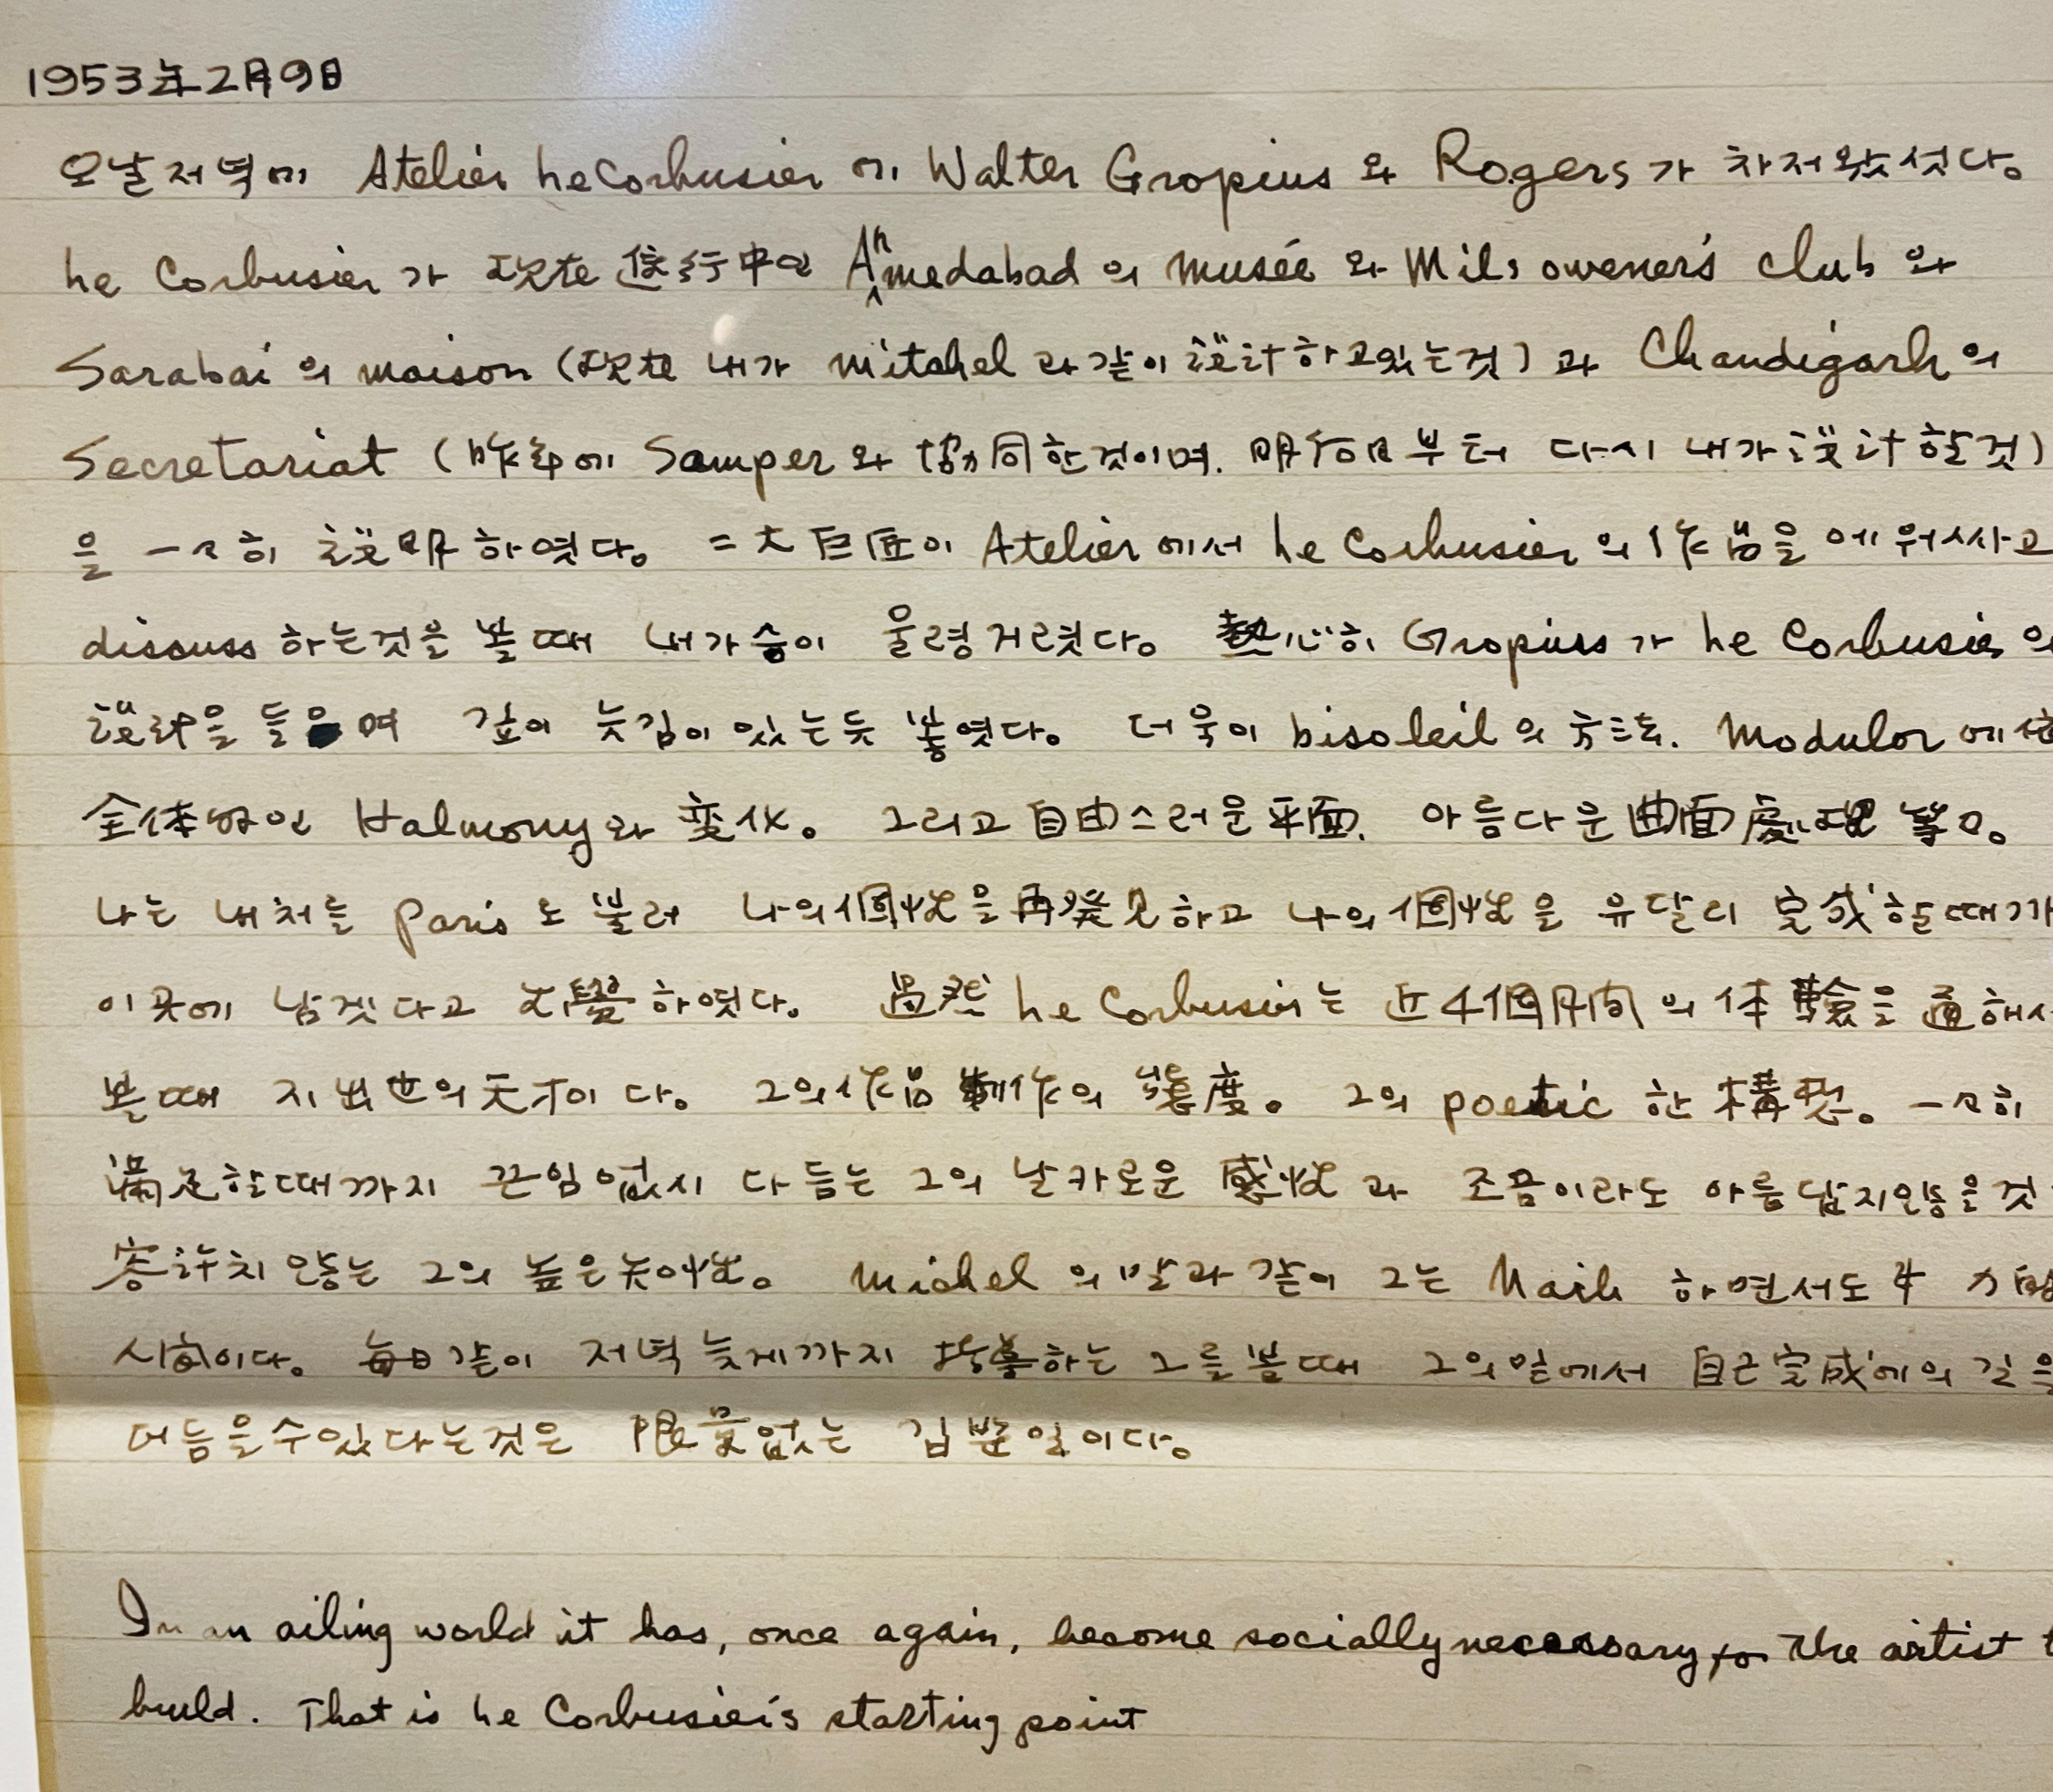 1953年2月9日
오날 저녁에 Atelier Le Corbusier 에 Walter Gropius 와 Rogers 가 차저왓섯다。
Le Corbusier 가 現在 進行中인 Ahmedabad 의 musée 와 Mils owener's club 와
Sarabai 의 maison (現在 내가 mitchel 과 같이 設計하고 있는 것) 과 Chandigarh 의
Secretariat (昨年에 Samper 와 協同한 것이며. 明日부터 다시 내가 設計할 것)
을 一々히 說明하엿다。 二大巨匠이 Atelier 에서 Le Corbusier 의 作品을 에워싸고
discuss 하는 것을 볼때 내 가슴이 울렁거렷다。 熱心히 Gropiuss 가 Le Corbusie 의
說明을 들으며 깊이 늣김이 있는듯 봏엿다。 더욱이 bisoleil 의 方法. Modulor 에
全体的인 Halmony 와 変化。 그리고 自由스러운 平面. 아름다운 曲面處理 等々。
나는 내 처를 Paris 로 불러 나의 個性을 再發見하고 나의 個性을 유달리 完成할때까
이곳에 남겟다고 하엿다。 過然 Le Corbusier는 近4個月間의 体驗을 通해서
볼때 지 出世의 天才이다。 그의 作品 制作의 態度。 그의 poetic 한 構想。 一々히
滿足할때까지 끈임없시 다듬는 그의 날카로운 感性과 조곰이라도 아름답지않을것
容許치 않는 그의 높은 知性。 Michel 의 말과 같이 그는 하면서도
시이다。 每日 같이 저녁 늦게까지 하는 그를 볼때 그의 일에서 自己完成에의 길을
더듬을 수 있다는 것은 限量없는 깁븐일이다。
In an ailing world it has, once again, become socially necessary for the artist t
build. That is Le Corbusier's starting point